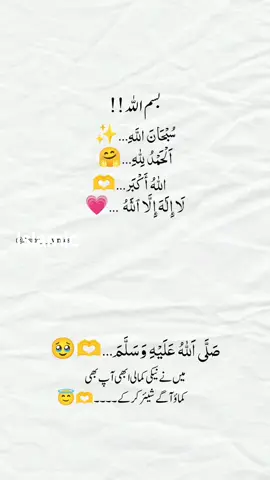 بسم اللہ!!
سُبْحَانَ اللّٰهِ...✨
اَلْحَمْدُ لِلّٰهِ...🤗
اللّٰهُ أَكْبَر...🫶
لَا إِلَهَ إِلَّا اللّٰهُ ...💗
صَلَّى اللّٰهُ عَلَيْهِ وَسَلَّمَ...🫶🥹
میں نے نیکی کمالی ابھی آپ بھی
کماؤ آگے شیئر کر کے۔۔۔۔🫶😇